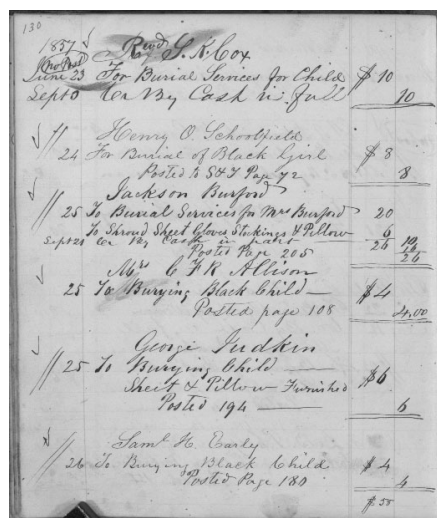 130
1857 Revd S. K. Cox
No Post
June 23 For Burial Services for Child $10
Sept Cr By Cash in full 10
Henry O. Schoolfield
24 For Burial of Black Girl $8
Posted to S&T Page 72 8
Jackson Burford
25 To Burial Services for Mrs Burford 20
To Shroud Sheet Gloves Stockings & Pillow 6
Sept 21 Cr By Cash in part 26 10
Posted Page 205 16
26
Mrs C F R Allison
25 To Burying Black Child $4
Posted page 108 4.00
George Judkin
25 To Burying Child
Sheet & Pillow Furnished $6
Posted 194 6
Saml H. Early
26 To Burying Black Child $4
Posted Page 180 4
$58